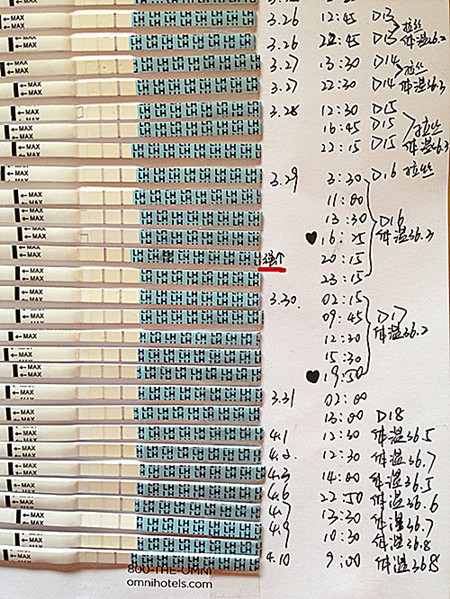 ←MAX 3.26 12:45 D13 拉丝
←MAX 3.26 22:45 D13 体温36.2
←MAX 3.27 13:30 D14 拉丝
←MAX 3.27 22:30 D14 体温36.3
←MAX 3.28 12:30 D15
←MAX 16:45 D15 拉丝
←MAX 22:15 D15 体温36.3
←MAX 3.29 3:30 D16 拉丝
←MAX 11:00
←MAX 13:30 D16
←MAX ♥ 16:25 体温36.3
←MAX 20:15
←MAX 23:15
←MAX 3.30. 02:15
←MAX 09:45 D17
←MAX 12:30 体温36.2
←MAX 15:30
←MAX ♥ 19:50
←MAX 3.31 02:00
←MAX 13:00 D18
←MAX 4.1 12:30 体温36.5
←MAX 4.2. 12:30 体温36.7
←MAX 4.3 14:00 体温36.5
←MAX 4.6 22:50 体温36.6
←MAX 4.7 13:30 体温36.7
←MAX 4.9 10:30 体温36.8
←MAX 4.10 9:00 体温36.8
800-THE-OMNI
omnihotels.com